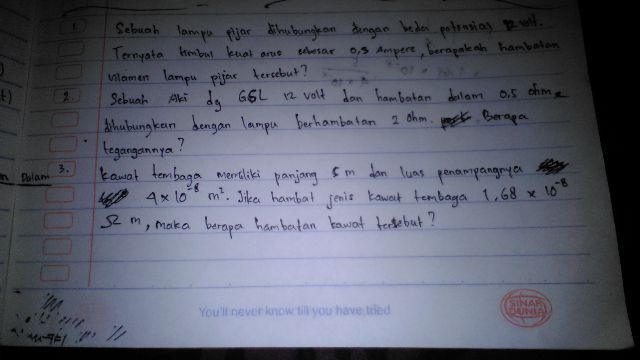 1. Sebuah lampu pijar dihubungkan dengan beda potensial 12 volt.
Ternyata timbul kuat arus sebesar 0,5 Ampere, berapakah hambatan
vilamen lampu pijar tersebut?
2. Sebuah Aki dg GGL 12 volt dan hambatan dalam 0,5 ohm
dihubungkan dengan lampu berhambatan 2 ohm. Berapa
tegangannya?
Dalam 3. kawat tembaga memiliki panjang 5 m dan luas penampangnya
4 x 10⁻⁸ m². Jika hambat jenis kawat tembaga 1,68 x 10⁻⁸
Ω m, maka berapa hambatan kawat tersebut?
You'll never know till you have tried
SINAR
DUNIA